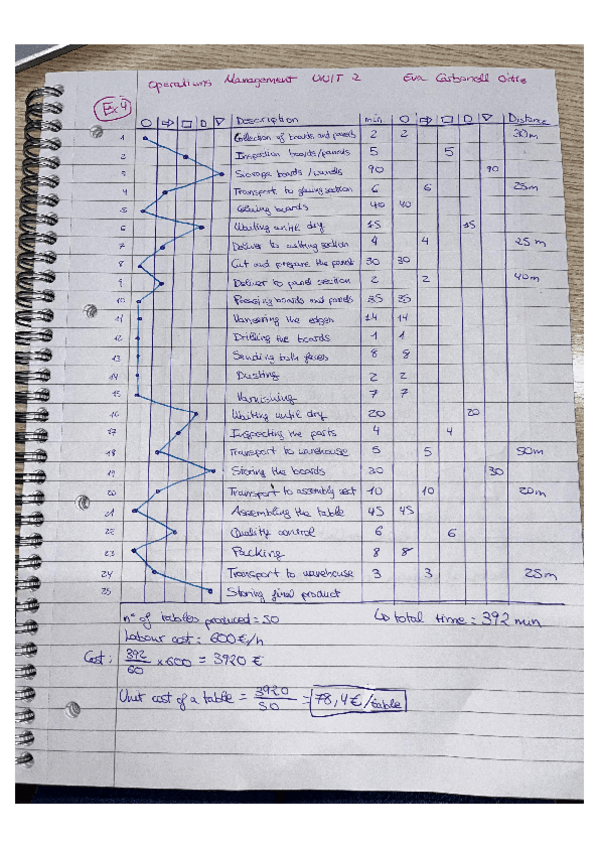 Operations Management UNIT 2 Eva Carbonell
Ex 4
○ ⇨ □ D ▽ Description min ○ ⇨ □ D ▽ Distance
1 Collection of boards and panels 2 2 30m
2 Inspection boards/pannels 5 5
3 Storage boards / 90 90
4 Transport to gluing section 6 6 25m
5 Gluing boards 40 40
6 Waiting until dry 15 15
7 Deliver to cutting section 4 4 25m
8 Cut and prepare the panel 30 30
9 Deliver to panel section 2 2 40m
10 Pressing boards and panels 35 35
11 the edges 14 14
12 Drilling the boards 1 1
13 Sanding both faces 8 8
14 Dusting 2 2
15 Varnishing 7 7
16 Waiting until dry 20 20
17 Inspecting the parts 4 4
18 Transport to warehouse 5 5 50m
19 Storing the boards 30 30
20 Transport to assembly sect 10 10 20m
21 Assembling the table 45 45
22 Quality control 6 6
23 Packing 8 8
24 Transport to warehouse 3 3 25m
25 Storing final product
nº of tables produced = 50 ↳ total time: 392 min
Labour cost: 600€/h
Cost: 392/60 x600 = 3920 €
Unit cost of a table = 3920/50 = 78,4€/table